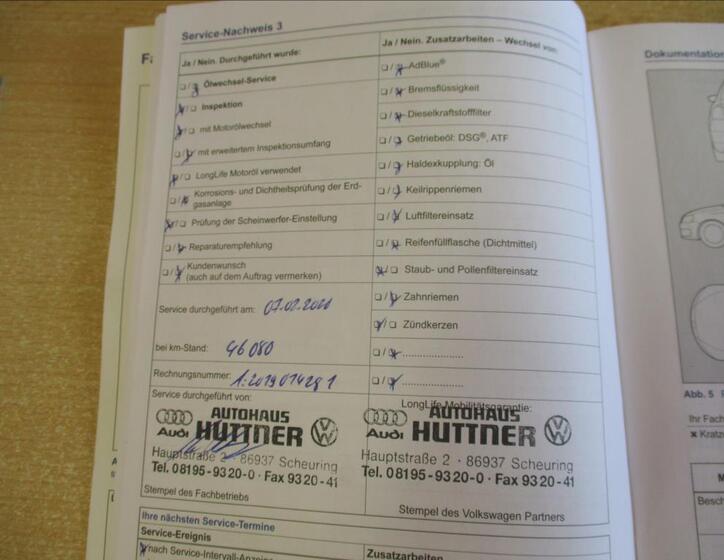 Service-Nachweis 3
Ja / Nein. Durchgeführt wurde:
Ölwechsel-Service
Inspektion
mit Motorölwechsel
mit erweitertem Inspektionsumfang
LongLife Motoröl verwendet
Korrosions- und Dichtheitsprüfung der Erd-
gasanlage
Prüfung der Scheinwerfer-Einstellung
Reparaturempfehlung
Kundenwunsch
(auch auf dem Auftrag vermerken)
Service durchgeführt am:
bei km-Stand: 46 080
Rechnungsnummer:
Service durchgeführt von:
AUTOHAUS
Audi HÜTTNER
Hauptstraße 2 · 86937 Scheuring
Tel. 08195-9320-0 · Fax 9320-41
Stempel des Fachbetriebs
Ja / Nein. Zusatzarbeiten – Wechsel von:
AdBlue®
Bremsflüssigkeit
Dieselkraftstofffilter
Getriebeöl: DSG®, ATF
Haldexkupplung: Öl
Keilrippenriemen
Luftfiltereinsatz
Reifenfüllflasche (Dichtmittel)
Staub- und Pollenfiltereinsatz
Zahnriemen
Zündkerzen
LongLife Mobilitätsgarantie:
AUTOHAUS
Audi HÜTTNER
Hauptstraße 2 · 86937 Scheuring
Tel. 08195-9320-0 · Fax 9320-41
Stempel des Volkswagen Partners
Ihre nächsten Service-Termine
Service-Ereignis
Zusatzarbeiten
nach Service-Intervall-Anzeige
Dokumentation
Abb. 5
Ihr Fach
Kratz
Besch